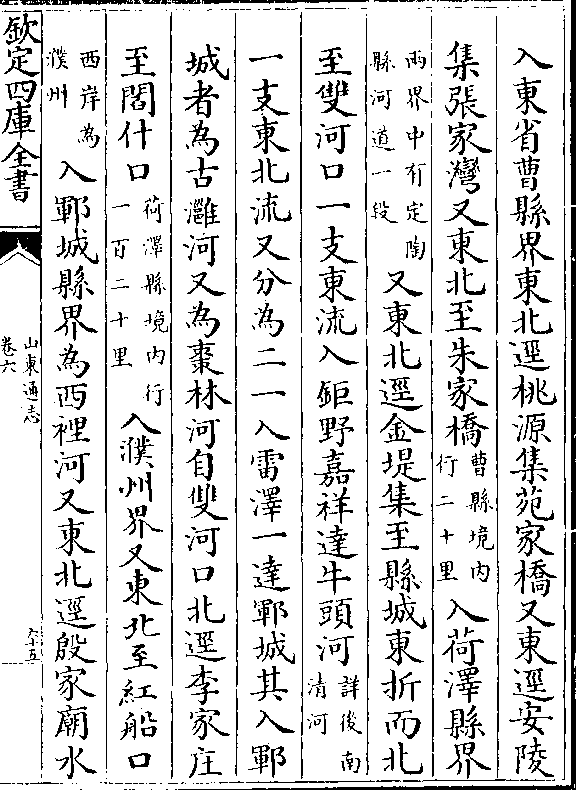 入東省曹縣界東北逕桃源集苑家橋又東逕安陵
集張家灣又東北至朱家橋曹縣境内行二十里入荷澤縣界
兩界中有定陶縣河道一段又東北逕金堤集至縣城東折而北
至雙河口一支東流入鉅野嘉祥達牛頭河詳後南清河
一支東北流又分為二一入雷澤一達鄆城其入鄆
城者為古灉河又為棗林河自雙河口北逕李家庄
至閻什口荷澤縣境内行一百二十里入濮州界又東北至紅船口
西岸為濮州入鄆城縣界為西裡河又東北逕殷家廟水
欽定四庫全書
山東通志
卷六